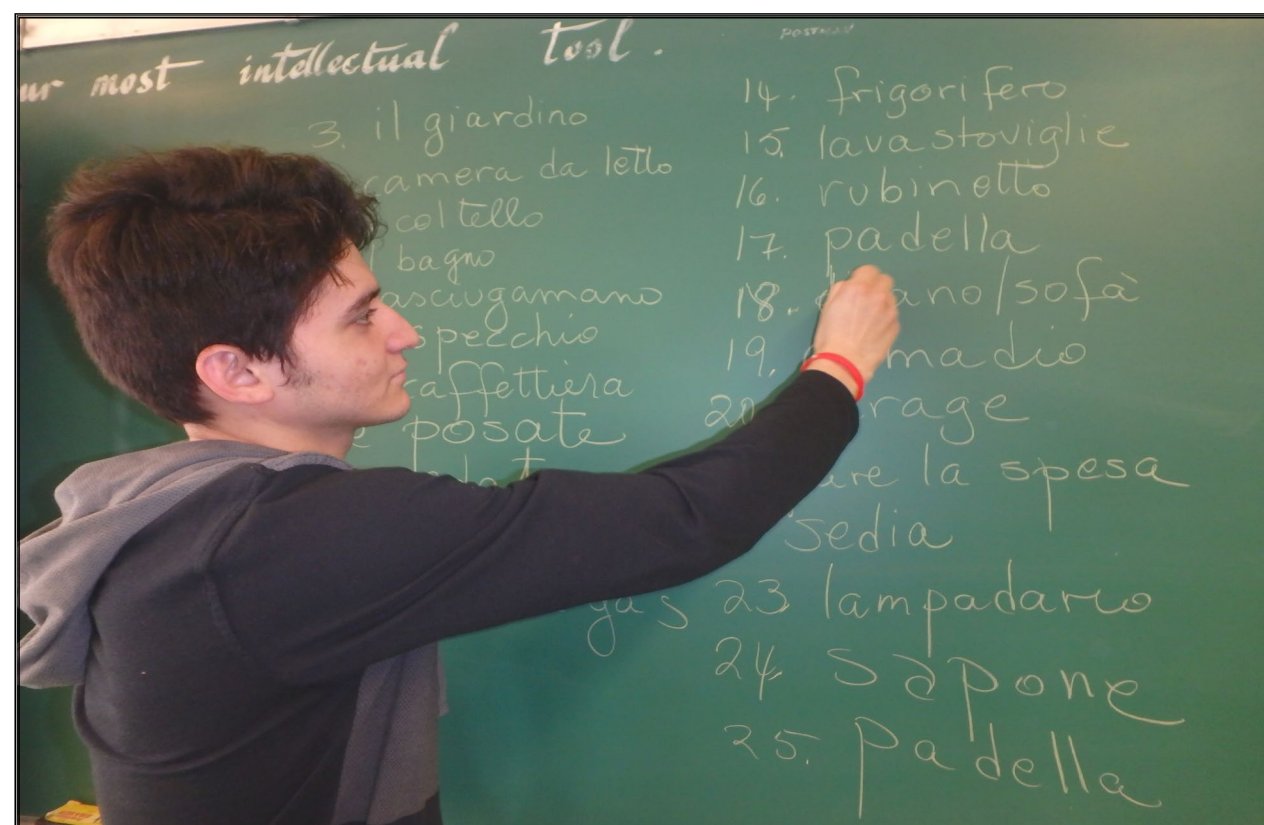 ur most intellectual tool.
POSTMAN
3. il giardino
camera da letto
coltello
bagno
asciugamano
specchio
caffettiera
posate
gas
14. frigorifero
15. lavastoviglie
16. rubinetto
17. padella
18. ano/sofà
19. madio
20. rage
are la spesa
sedia
23 lampadario
24 sapone
25. padella